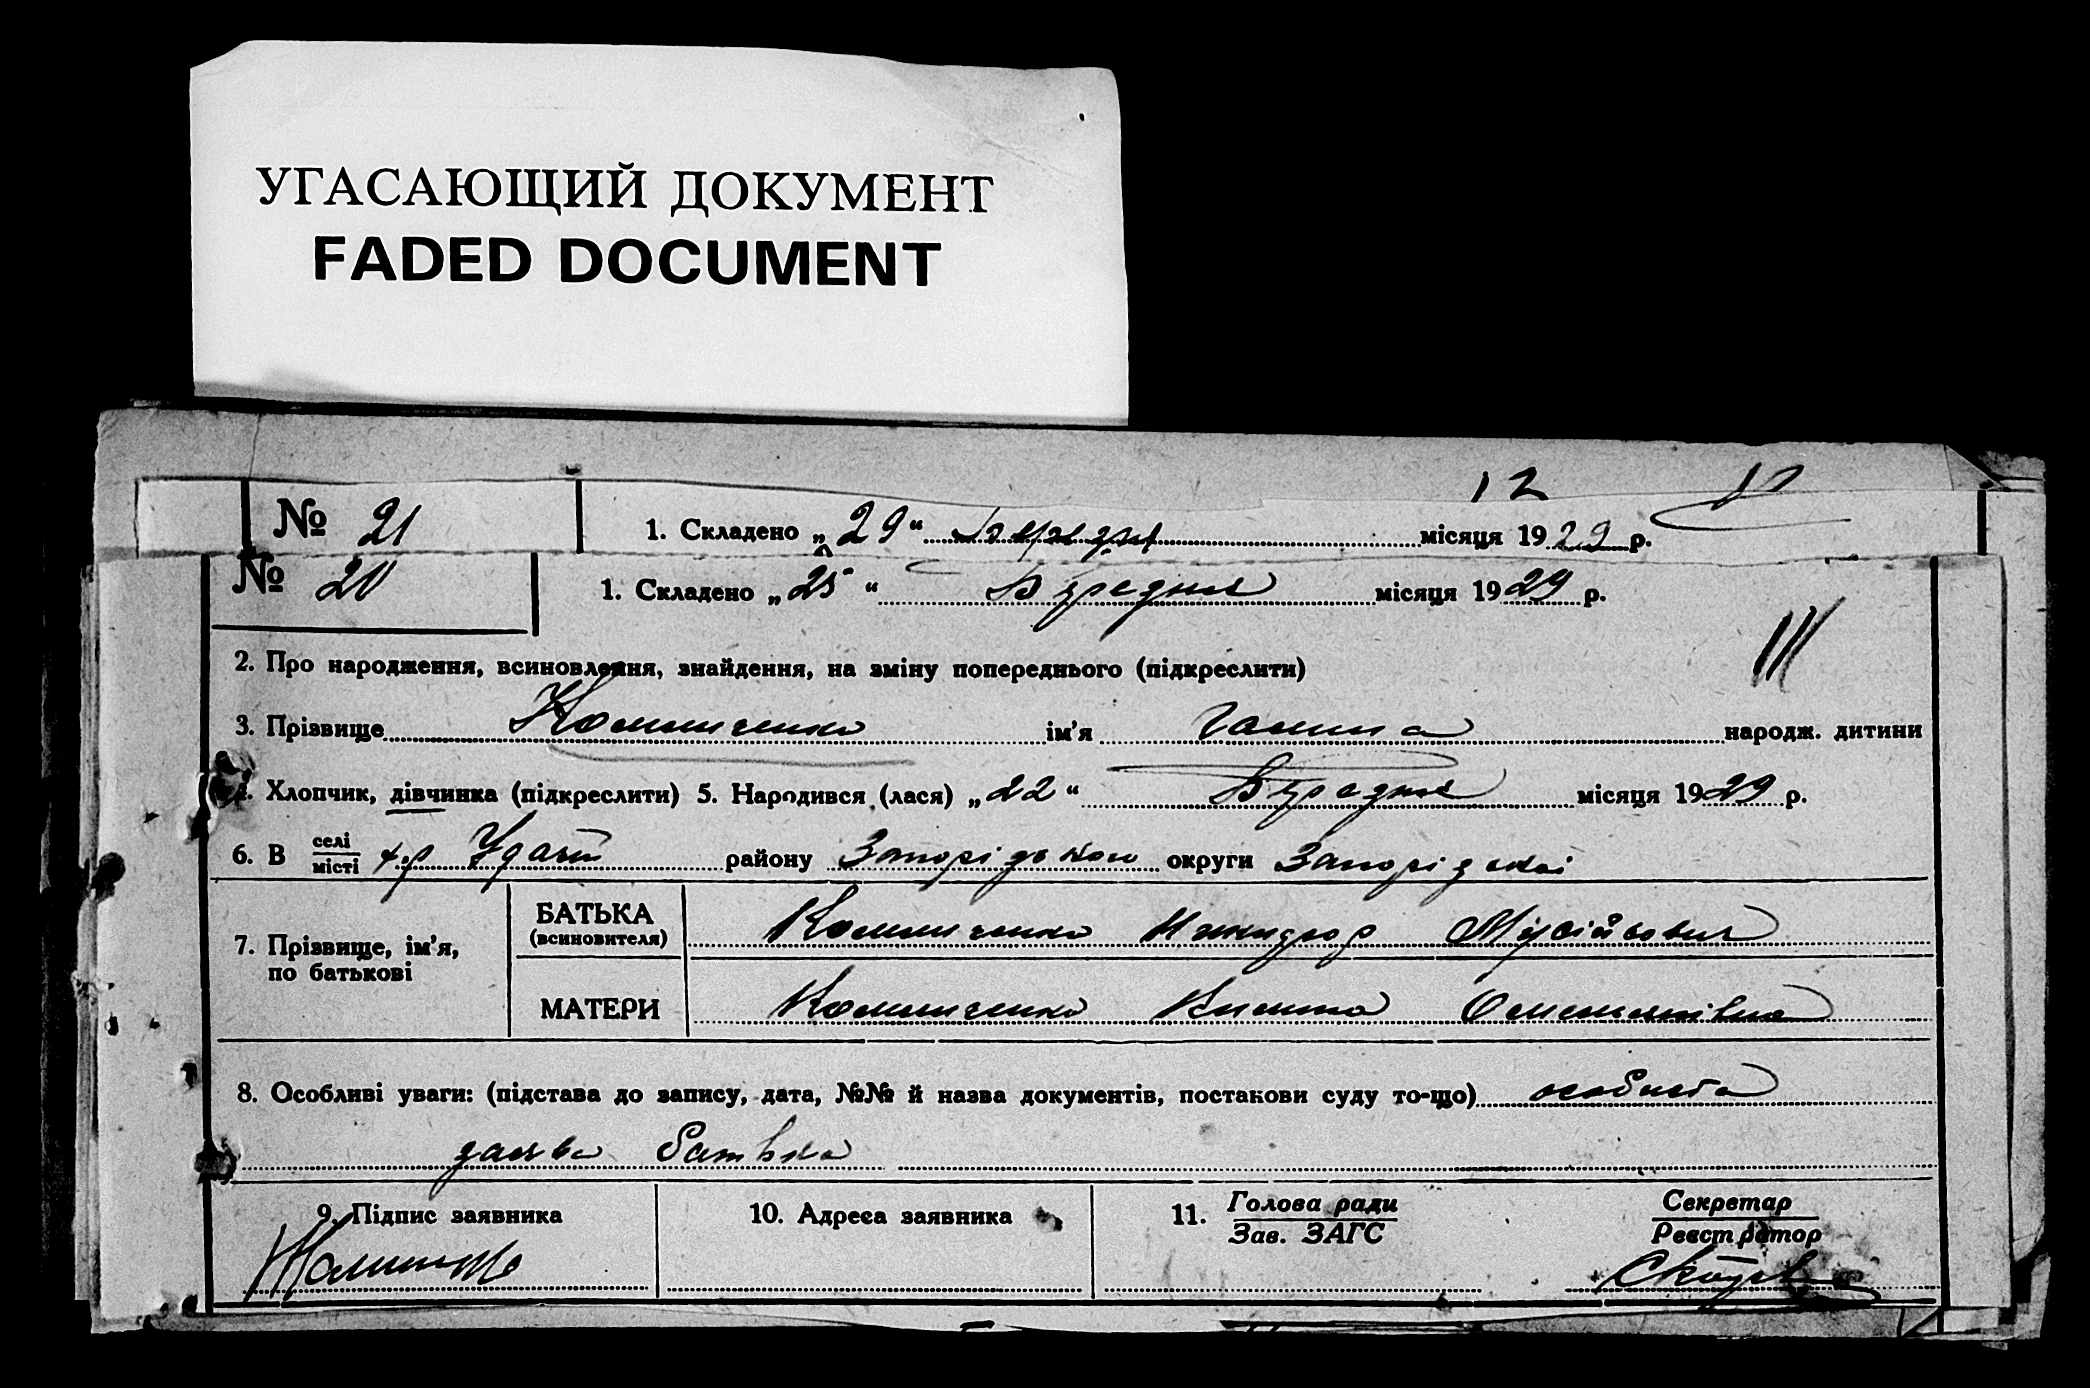 УГАСАЮЩИЙ ДОКУМЕНТ
FADED DOCUMENT
12
№ 21 1. Складено „29“ місяця 1929 р.
№ 20 1. Складено „25“ Вересня місяця 1929 р.
2. Про народження, всиновлення, знайдення, на зміну попереднього (підкреслити)
3. Прізвище ім'я Галина народж. дитини
4. Хлопчик, дівчинка (підкреслити) 5. Народився (лася) „22“ Вересня місяця 1929 р.
6. В селі/місті х-р Удачн району Запорізького округи Запорізької
7. Прізвище, ім'я, по батькові
БАТЬКА (всиновителя) Никифор Мусійович
МАТЕРИ Килина Омелянівна
8. Особливі уваги: (підстава до запису, дата, №№ й назва документів, постанови суду то-що) особиста
заява батька
9. Підпис заявника 10. Адреса заявника 11. Голова ради/Зав. ЗАГС Секретар/Реєстратор